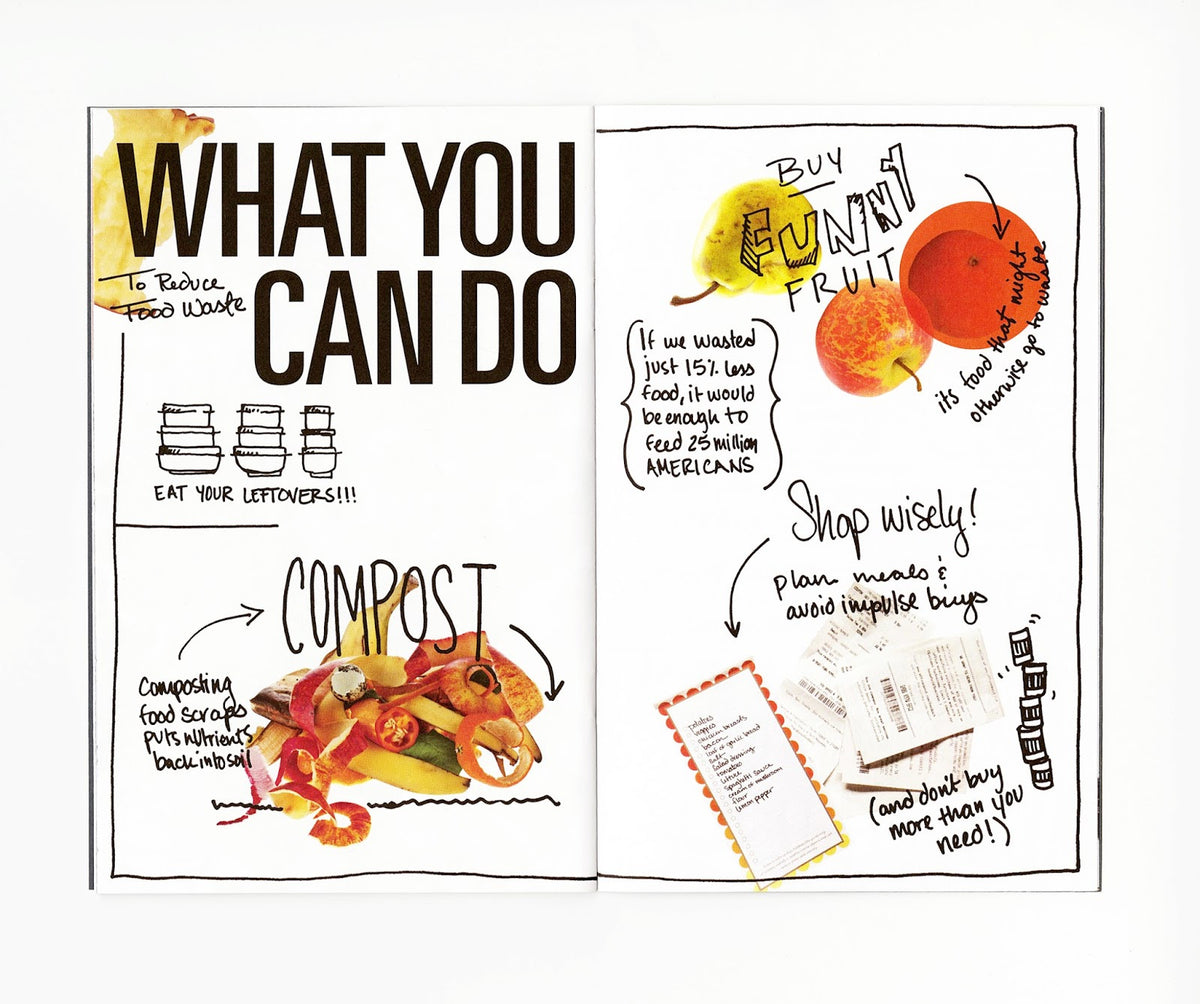 WHAT YOU
CAN DO
To Reduce
Food Waste
EAT YOUR LEFTOVERS!!!
COMPOST
Composting
food scraps
puts nutrients
back into soil
BUY
FUNNY
FRUIT
its food that might
otherwise go to waste
If we wasted
just 15% less
food, it would
be enough to
feed 25 million
AMERICANS
Shop wisely!
plan meals &
avoid impulse buys
potatoes
veggies
chicken breasts
bacon
loaf of garlic bread
salt
salad dressing
tomatoes
lettuce
spaghetti sauce
cream of mushroom
flour
lemon pepper
(and don't buy
more than you
need!)